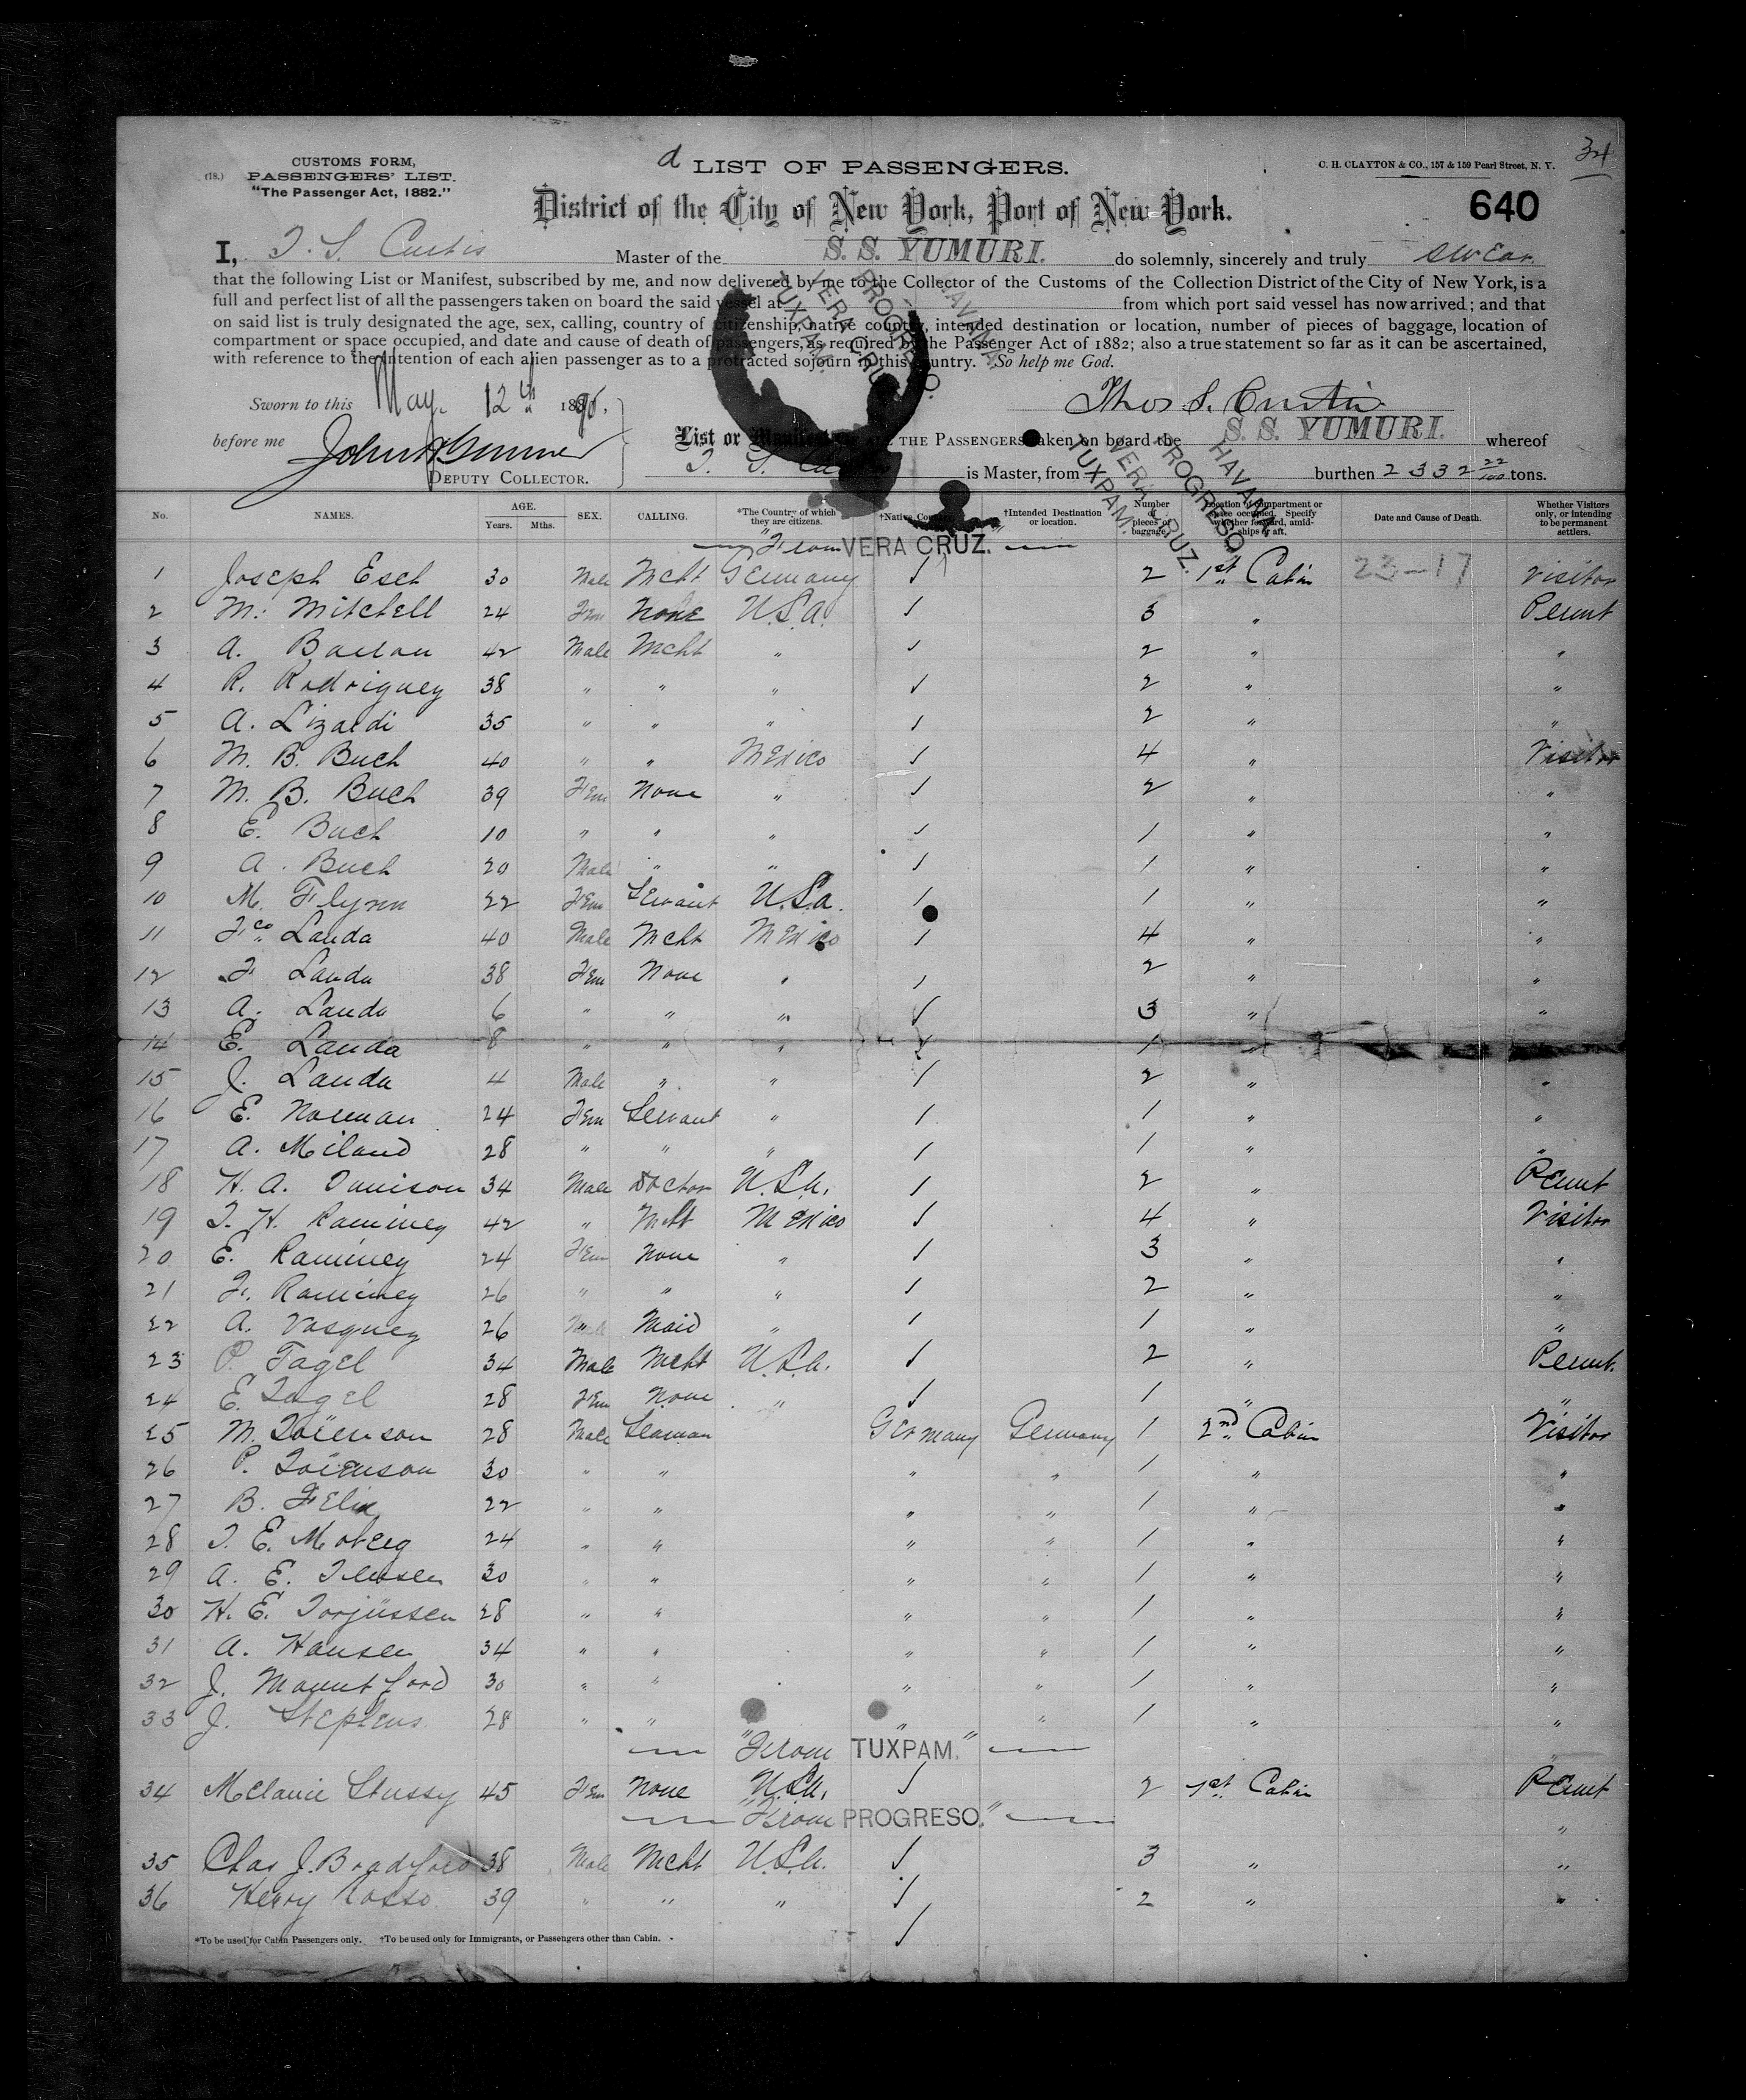 34
(18.) CUSTOMS FORM,
PASSENGERS' LIST.
"The Passenger Act, 1882."
d LIST OF PASSENGERS.
C. H. CLAYTON & CO., 157 & 159 Pearl Street, N. Y.
District of the City of New York, Port of New York.
640
I, T. S. Curtis Master of the S. S. YUMURI. do solemnly, sincerely and truly swear
that the following List or Manifest, subscribed by me, and now delivered by me to the Collector of the Customs of the Collection District of the City of New York, is a
full and perfect list of all the passengers taken on board the said vessel at TUXPAM. VERA CRUZ. PROGRESO. HAVANA. from which port said vessel has now arrived; and that
on said list is truly designated the age, sex, calling, country of citizenship, native country, intended destination or location, number of pieces of baggage, location of
compartment or space occupied, and date and cause of death of passengers, as required by the Passenger Act of 1882; also a true statement so far as it can be ascertained,
with reference to the intention of each alien passenger as to a protracted sojourn in this country. So help me God.
Sworn to this May 12th 1890.
Thos S. Curtis
before me
DEPUTY COLLECTOR.
List or Manifest OF ALL THE PASSENGERS taken on board the S. S. YUMURI. whereof
T. S. Curtis is Master, from TUXPAM. VERA CRUZ. PROGRESO. HAVANA. burthen 2332 22/100 tons.
No. NAMES. AGE. Years. Mths. SEX. CALLING. *The Country of which they are citizens. †Native Country. †Intended Destination or location. Number of pieces of baggage. Location of compartment or space occupied. Specify whether forward, amidships or aft. Date and Cause of Death. Whether Visitors only, or intending to be permanent settlers.
"From VERA CRUZ."
1 Joseph Esch 30 Male Mcht Germany 2 1st Cabin 23-17 Visitor
2 M. Mitchell 24 Fem None U.S.A. 3 " Permt
3 A. Barron 42 Male Mcht " 2 " "
4 R. Rodriguez 38 " " " 2 " "
5 A. Lizardi 35 " " " 2 " "
6 M. B. Buch 40 " " Mexico 4 " Visitor
7 M. B. Buch 39 Fem None " 2 " "
8 E. Buch 10 " " " 1 " "
9 A. Buch 20 Male " " 1 " "
10 M. Flynn 22 Fem Servant U.S.a. 1 " "
11 Fco Landa 40 Male Mcht Mexico 4 " "
12 F. Landa 38 Fem None " 2 " "
13 A. Landa 6 " " " 3 " "
14 E. Landa 8 " " " 1 " "
15 J. Landa 4 Male " " 2 " "
16 E. Norman 24 Fem Servant " 1 " "
17 A. Miland 28 " " " 1 " "
18 H. A. Davison 34 Male Doctor U.S.a. 2 " Permt
19 T. H. Ramirez 42 " Mcht Mexico 4 " Visitor
20 E. Ramirez 24 Fem None " 3 " "
21 F. Ramirez 26 " " " 2 " "
22 A. Vasquez 26 " Maid " 1 " "
23 P. Tagel 34 Male Mcht U.S.a. 2 " Permt.
24 E. Tagel 28 Fem None " 1 " "
25 M. 28 Male Seaman Germany Germany 1 2nd Cabin Visitor
26 P. 30 " " " " 1 " "
27 B. Felix 22 " " " " 1 " "
28 T. E. Moberg 24 " " " " 1 " "
29 A. E. 30 " " " " 1 " "
30 H. E. Torjüssen 28 " " " " 1 " "
31 A. Hansen 34 " " " " 1 " "
32 J. Mountford 30 " " " " 1 " "
33 J. Stephens 28 " " " " 1 " "
"From TUXPAM."
34 Melanie Stussy 45 Fem None U.S.a. 2 1st Cabin Permt
"From PROGRESO."
"
35 Chas J. Bradford 38 Male Mcht U.S.a. 3 " "
36 Henry Rosso 39 " " " 2 " "
*To be used for Cabin Passengers only. †To be used only for Immigrants, or Passengers other than Cabin.